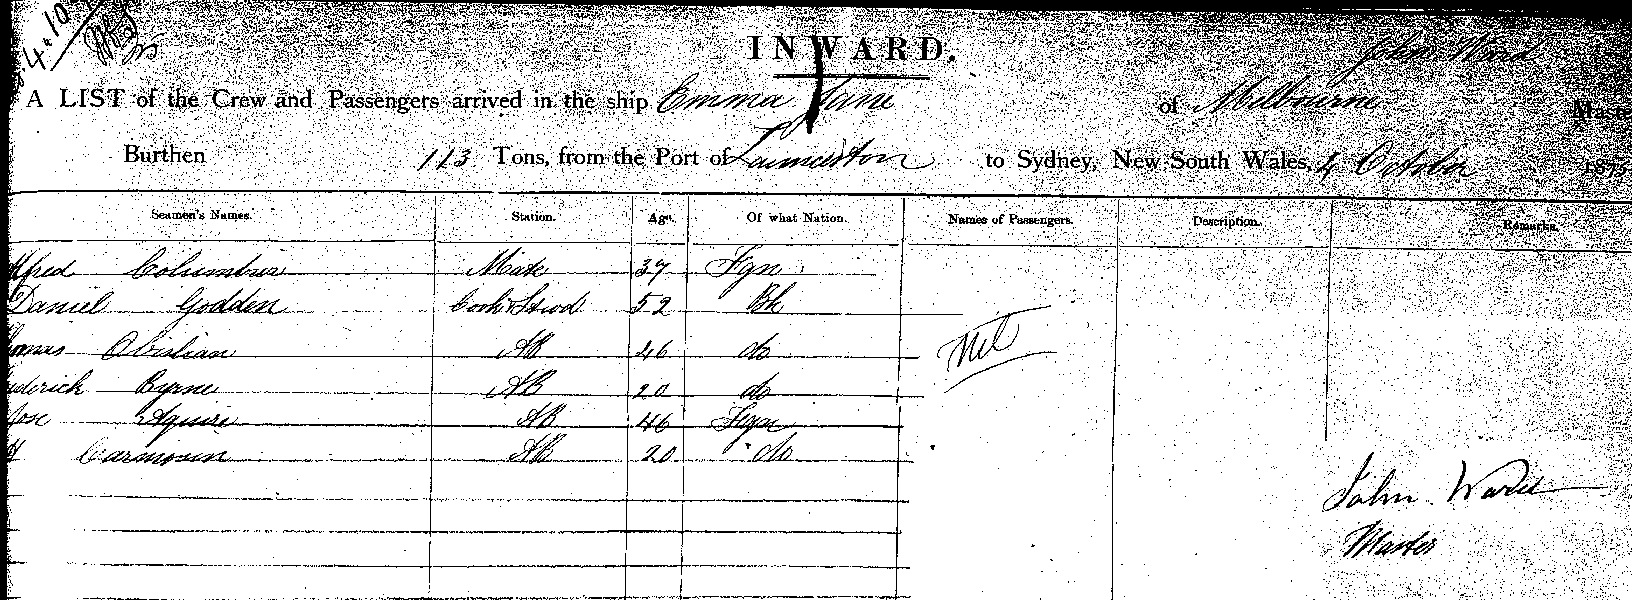 4.10
INWARD.
John Ward
A LIST of the Crew and Passengers arrived in the ship Emma Jane of Melbourne Master
Burthen 113 Tons, from the Port of Launceston to Sydney, New South Wales, 4 October 1875
Seamen's Names. Station. Age. Of what Nation. Names of Passengers. Description. Remarks.
Alfred Columbus Mate 37 Fgn
Daniel Godden Cook & Stwd 52 Bh
Thomas AB 46 do
Frederick Byrne AB 20 do
Nil
Jose Aquire AB 46 Fgn
AB 20 do
John Ward
Master